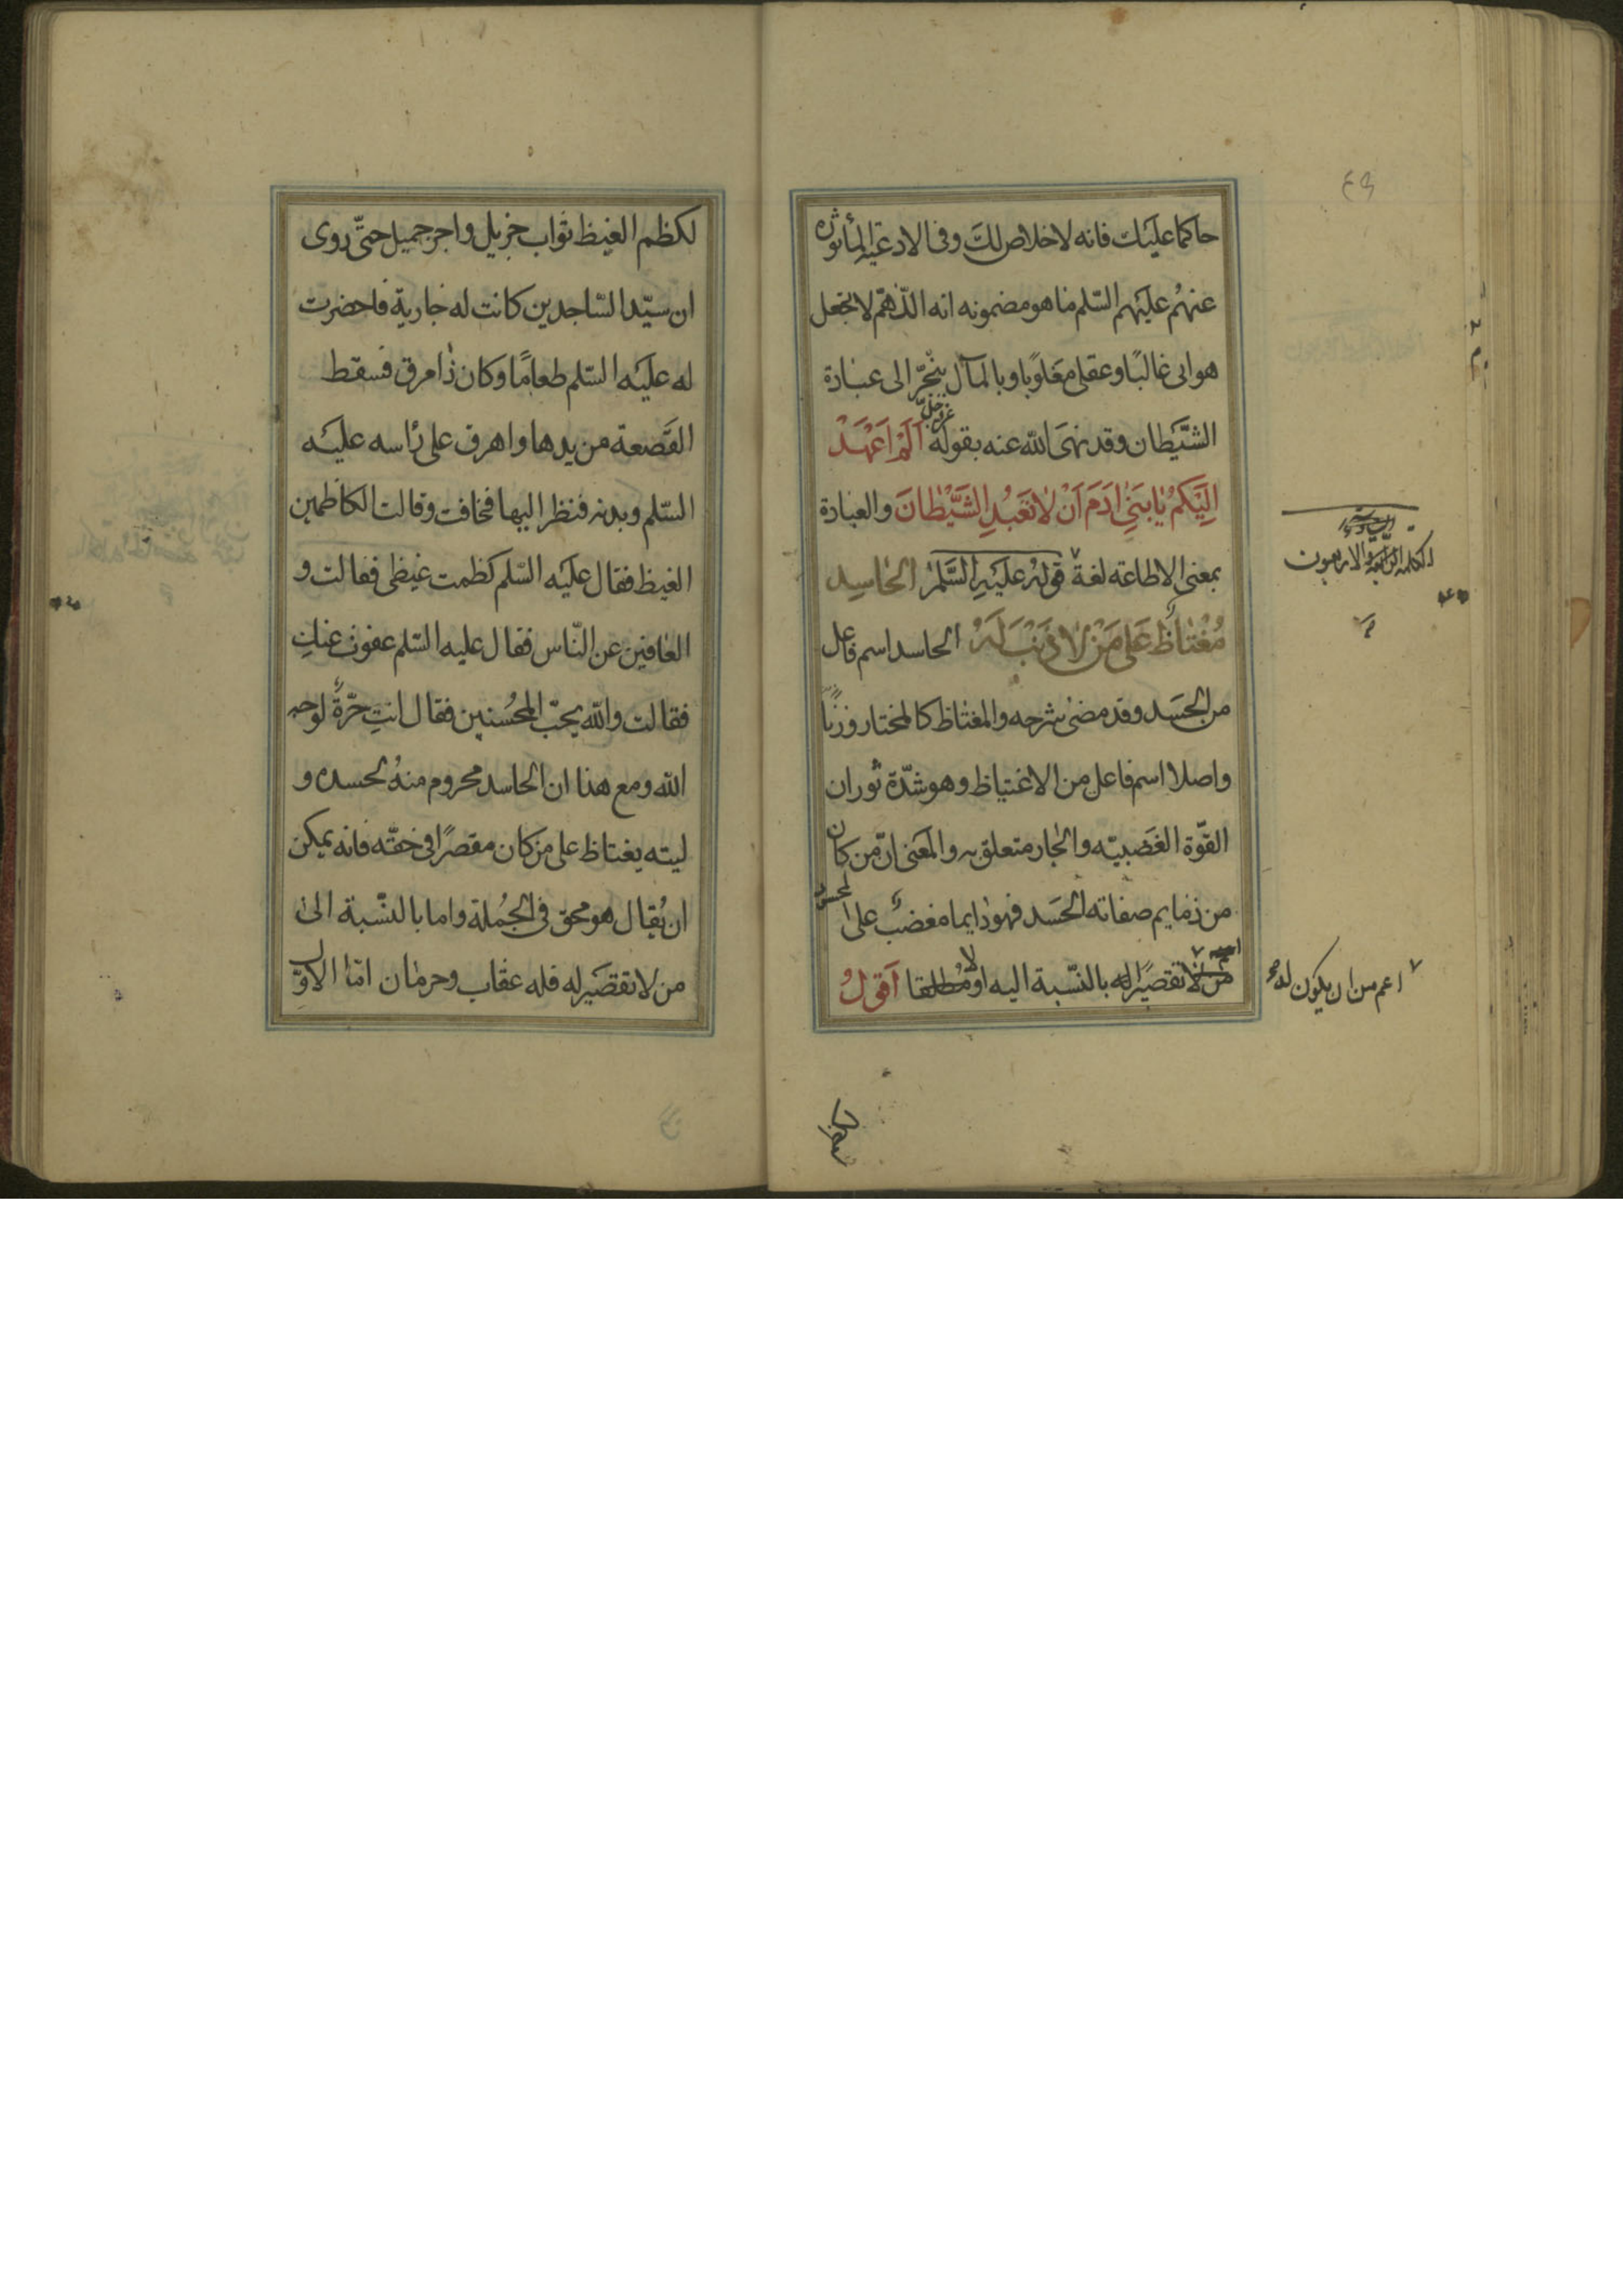 حاكما عليك فانه لا خلاص لك وفى الادعية المأثوره
عنهم عليهم السّلم ما هو مضمونه انه اللّهمّ لا تجعل
هوايى غالبًا وعقلى مغلوبًا وبالمآل ينجرّ الى عبادة
الشّيطان وقد نهى الله عنه بقوله عزّ وجلّ اَلَمْ اَعْهَدْ
اِلَيْكُمْ يٰا بَنِى اٰدَمَ اَنْ لاٰ تَعْبُدِ الشَّيْطٰانَ والعبادة
بمعنى الاطاعه لغة قوله عَلَيْهِ السَّلٰمُ الحٰاسِد
مُغْتٰاظٌ عَلىٰ مَنْ لاٰ ذَنْبَ لَهُ الحاسد اسم فاعل
من الحسَد وقد مضىٰ شرحه والمغتاظ كالمختار وزنًا
واصلا اسم فاعل من الاغتياظ وهو شدّة ثوران
القوّة الغضبيّه والجار متعلق به والمعنى انّ من كان
من ذمايم صفاته الحسد فهو دايما مغضب على المحسود
من لا تقصيرًا له بالنّسبة اليه او لا مطلقا اَقُولُ
الكلمه الرّابعة والاربعون
اعم من ان يكون له
لكظم الغيظ ثواب جزيل واجر جميل حتّى روى
ان سيّد السّاجدين كانت له جارية فاحضرت
له عليه السّلم طعامًا وكان ذا مرق فسقط
القصعة من يدها واهرق على رأسه عليه
السّلم وبدنه فنظر اليها فخافت وقالت الكاظمين
الغيظ فقال عليه السّلم كظمت غيظى فقالت و
العافين عن النّاس فقال عليه السّلم عفوت عنكِ
فقالت والله يحبّ المحسنين فقال انتِ حرّةٌ لوجه
الله ومع هذا ان الحاسد محروم منهُ لحسده و
ليته يغتاظ على من كان مقصرًا فى حقّه فانه يمكن
ان يُقال هو محق فى الجُملة واما بالنّسبة الى
من لا تقصير له فله عقاب وحرمان امّا الاوّل